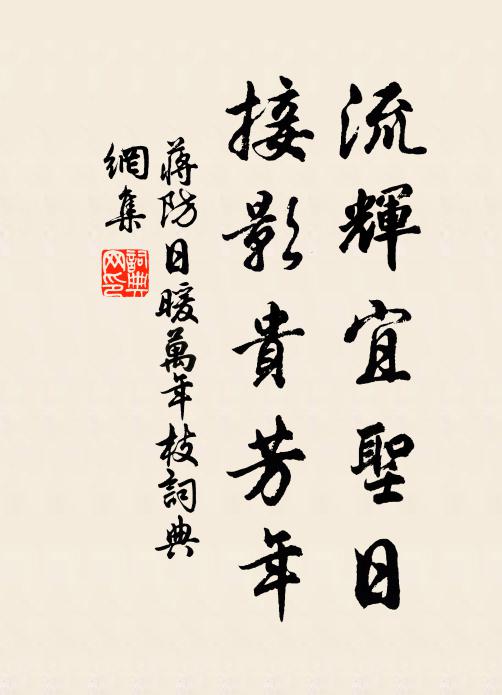 流輝宜聖日
接影貴芳年
蔣防日暖萬年枝詞典
網集
詞典
网印